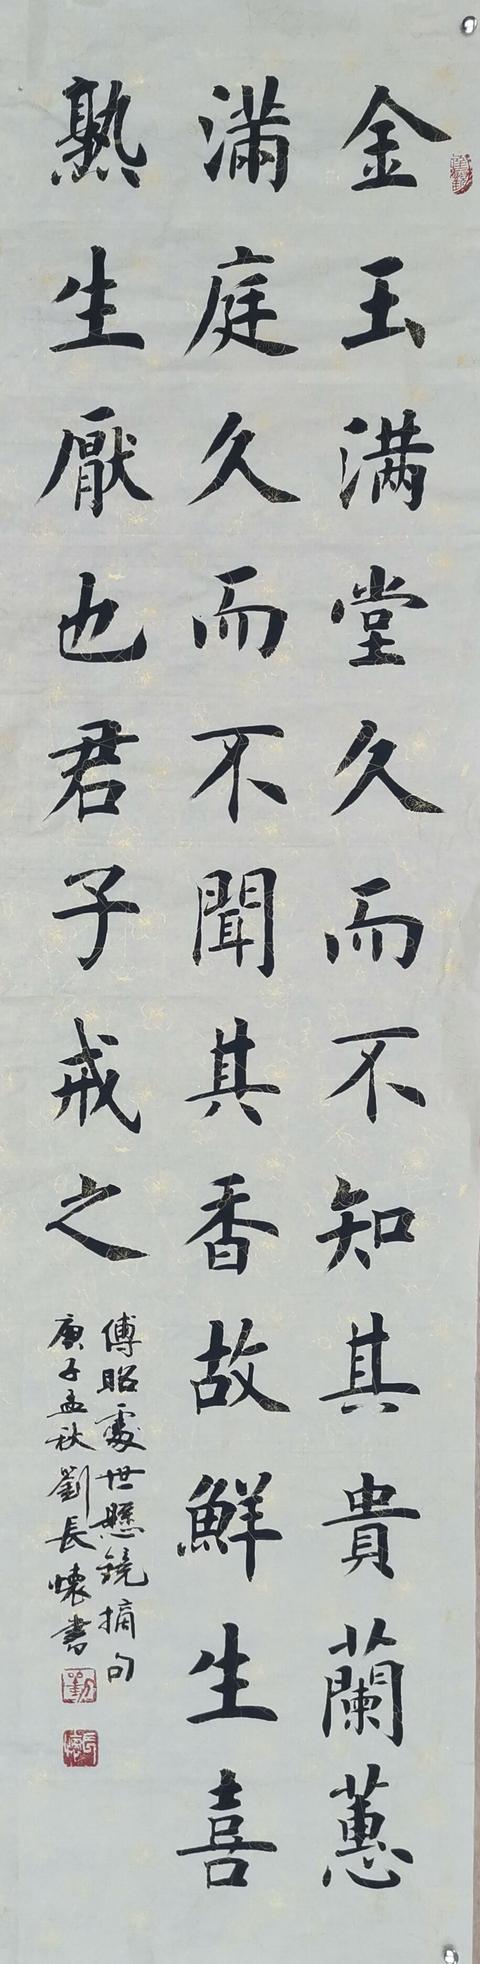 金玉满堂久而不知其貴蘭蕙
滿庭久而不聞其香故鮮生喜
熟生厭也君子戒之
傅昭處世懸鏡摘句
庚子孟秋劉長懷書